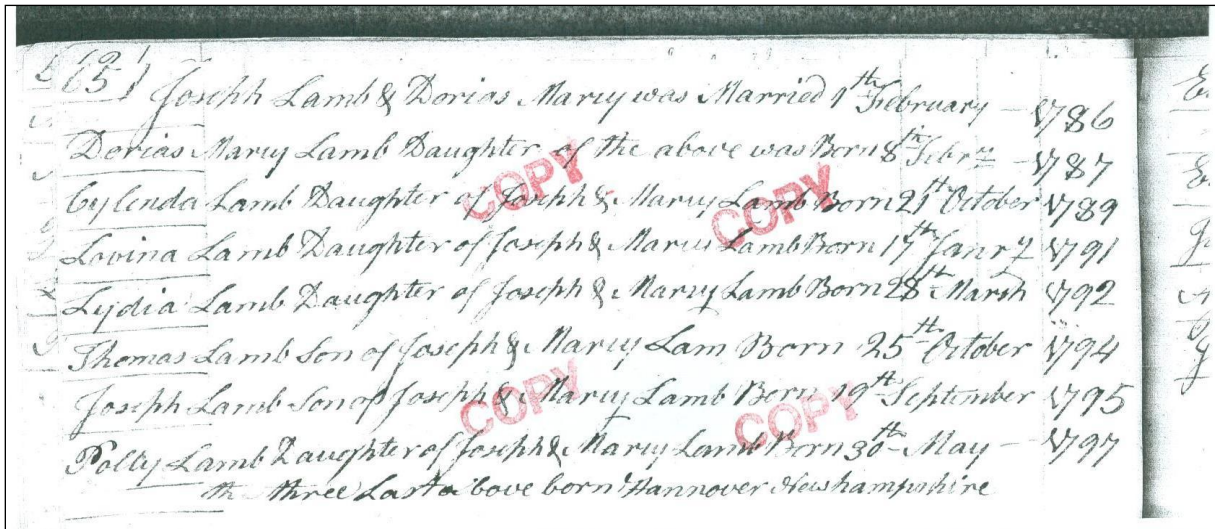 65 } Joseph Lamb & Dorias Marcy was Married 1th February — 1786
Dorias Marcy Lamb Daughter of the above was Born 8th Febry — 1787
Cylenda Lamb Daughter of Joseph & Marcy Lamb Born 21th October 1789
Lovina Lamb Daughter of Joseph & Marcy Lamb Born 17th Janry 1791
Lydia Lamb Daughter of Joseph & Marcy Lamb Born 28th March 1792
Thomas Lamb Son of Joseph & Marcy Lam Born 25th October 1794
Joseph Lamb Son of Joseph & Marcy Lamb Born 19th September 1795
Polly Lamb Daughter of Joseph & Marcy Lamb Born 30th May — 1797
th three Last above born Hannover Newhampshire
COPY
COPY
COPY
COPY